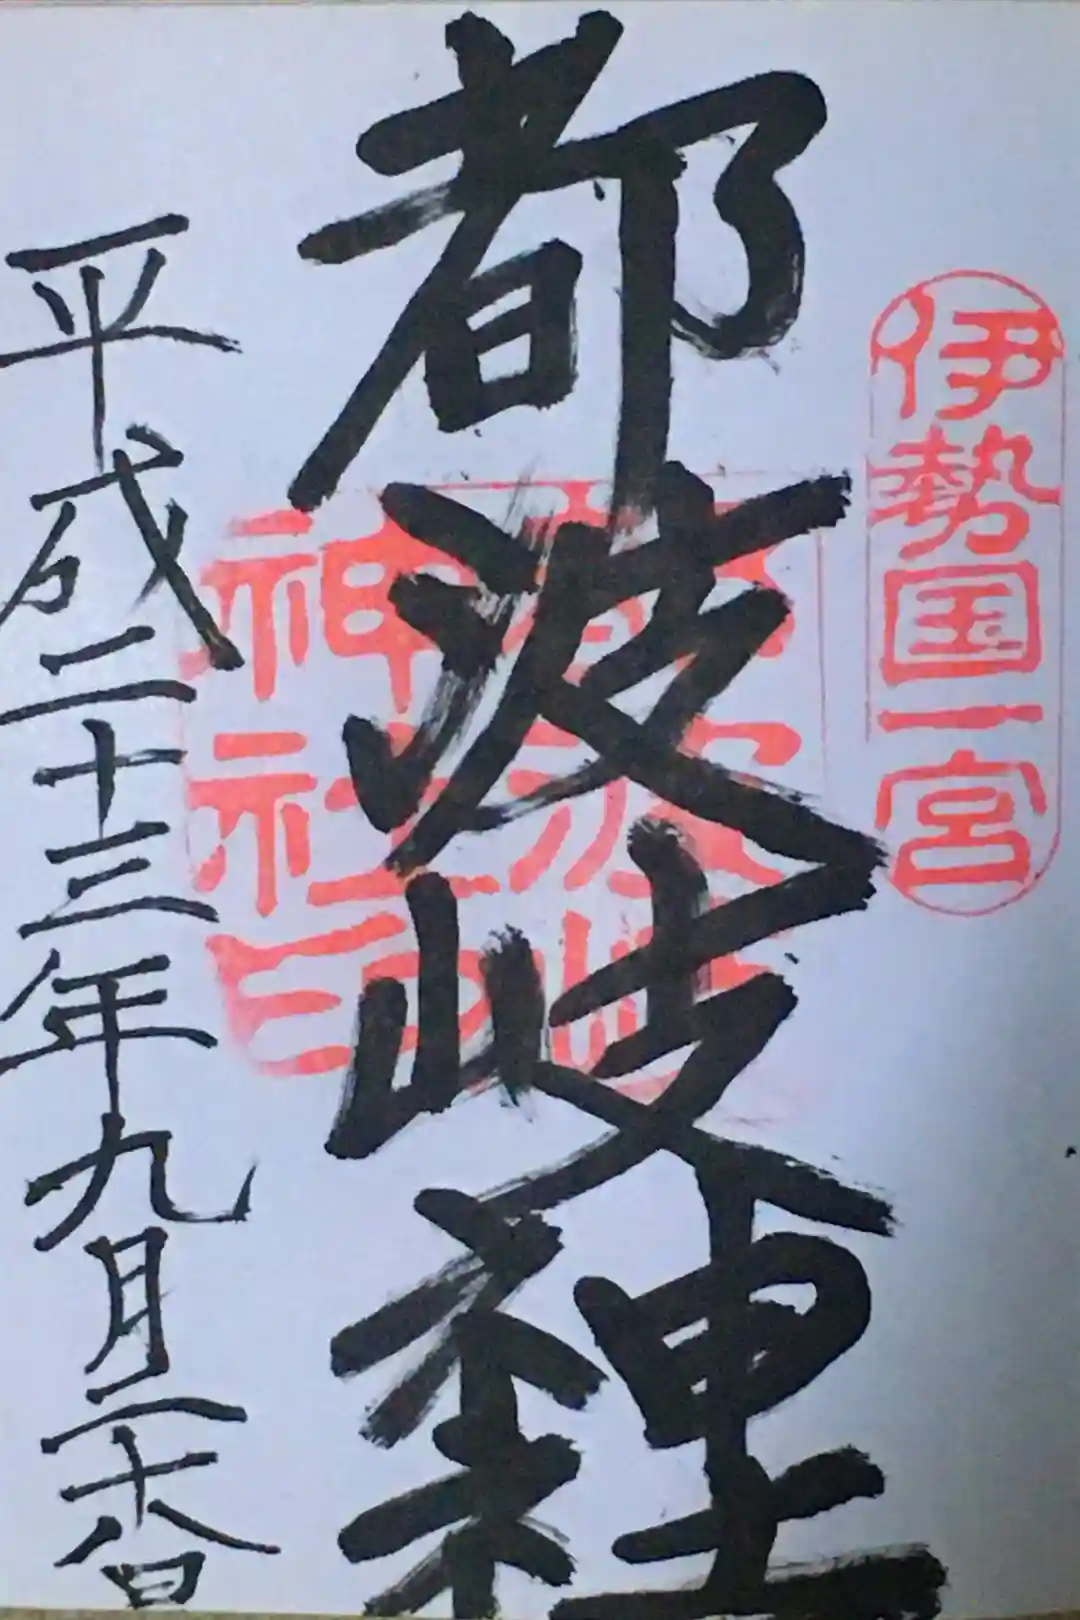 伊勢国一宮
都波岐神社
神社印
平成二十三年九月二十八日